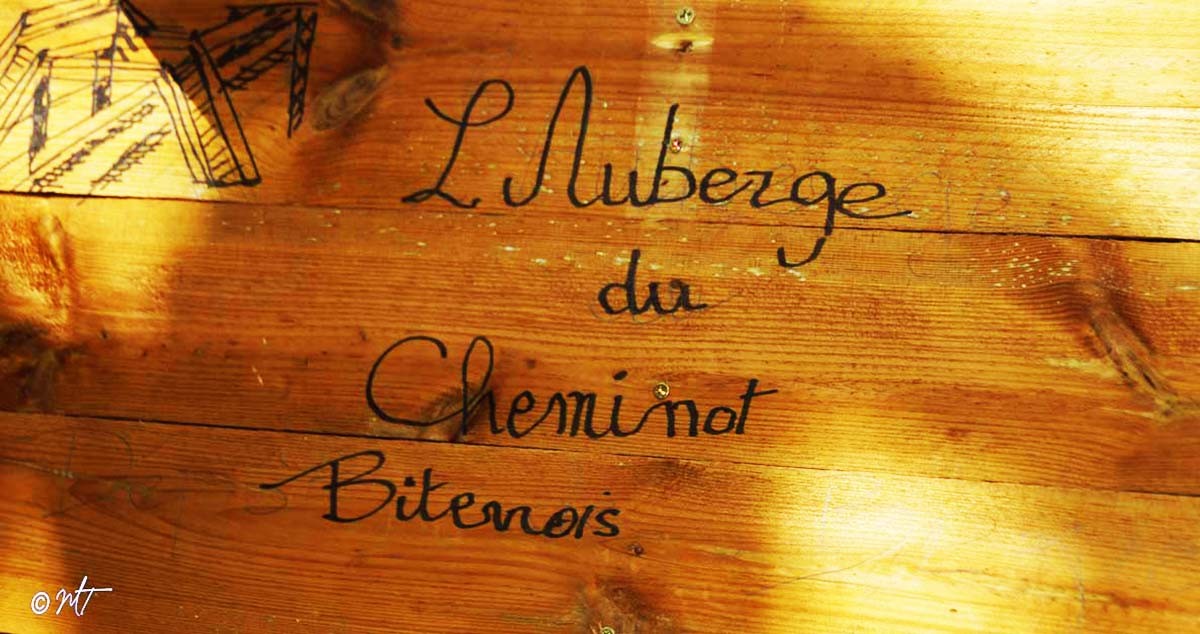 L'Auberge
du
Cheminot
Bitenois
© MT